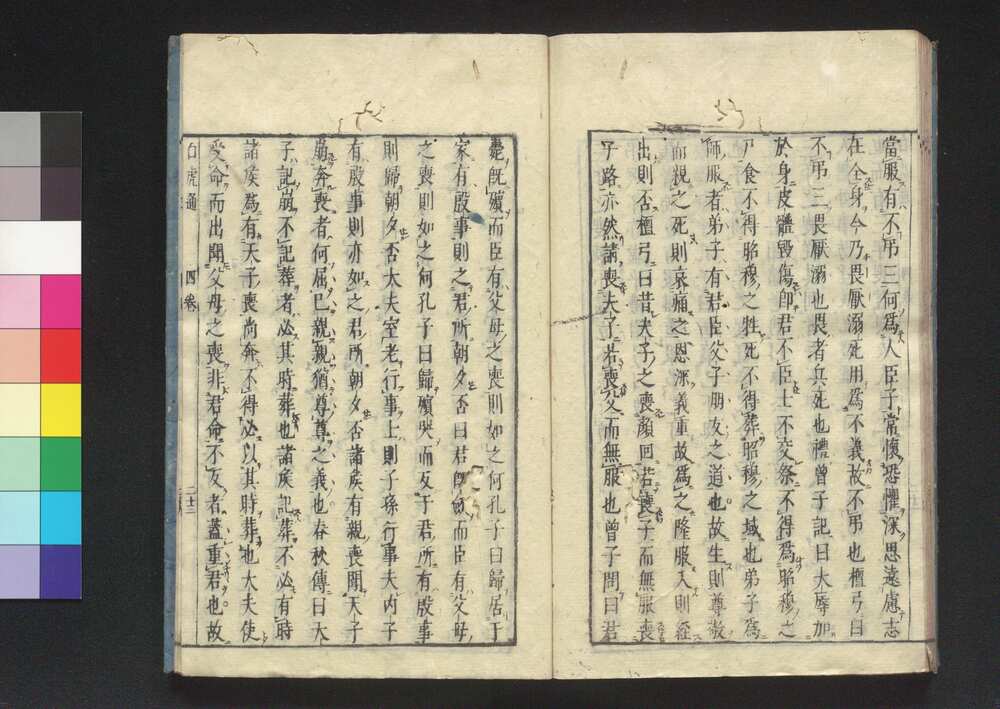 當服有不弔三何爲人臣子常懷恐懼深思遠慮志
在全身今乃畏厭溺死用爲不義故不弔也檀弓曰
不弔三畏厭溺也畏者兵死也禮曾子記曰大辱加
於身皮體毀傷即君不臣士不交祭不得爲昭穆之
尸食不得昭穆之牲死不得葬昭穆之域也弟子爲
師服者弟子有君臣父子朋友之道也故生則尊敬
而親之死則哀痛之恩深義重故爲之隆服入則絰
出則否檀弓曰昔夫子之喪顔回若喪子而無服喪
子路亦然請喪夫子若喪父而無服也曾子問曰君
薨既殯而臣有父母之喪則如之何孔子曰歸居于
家有殷事則之君所朝夕否曰君既而臣有父母
之喪則如之何孔子曰歸殯哭而反于君所有殷事
則歸朝夕否大夫室老行事士則子孫行事夫内子
有殷事則亦如之君所朝夕否諸矦有親喪聞天子
崩奔喪者何屈已親親猶尊尊之義也春秋傳曰天
子記崩不記葬者必其時葬也諸矦記葬不必有時
諸矦爲有天子喪尚奔不得必以其時葬也大夫使
受命而出聞父母之喪非君命不反者蓋重君也故
白虎通
四卷
二十二